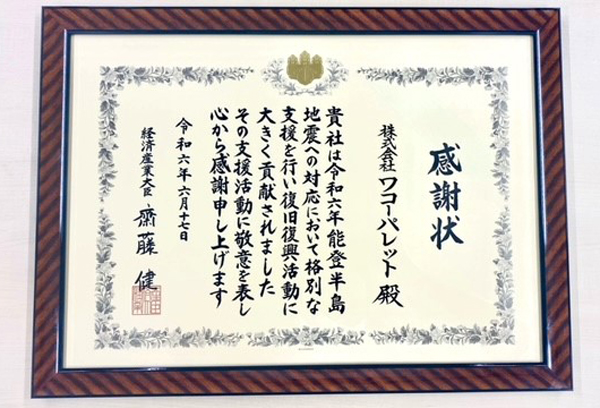 感謝状
株式会社ワコーパレット 殿
貴社は令和六年能登半島
地震への対応において格別な
支援を行い復旧復興活動に
大きく貢献されました
その支援活動に敬意を表し
心から感謝申し上げます
令和六年六月十七日
経済産業大臣 齋藤 健